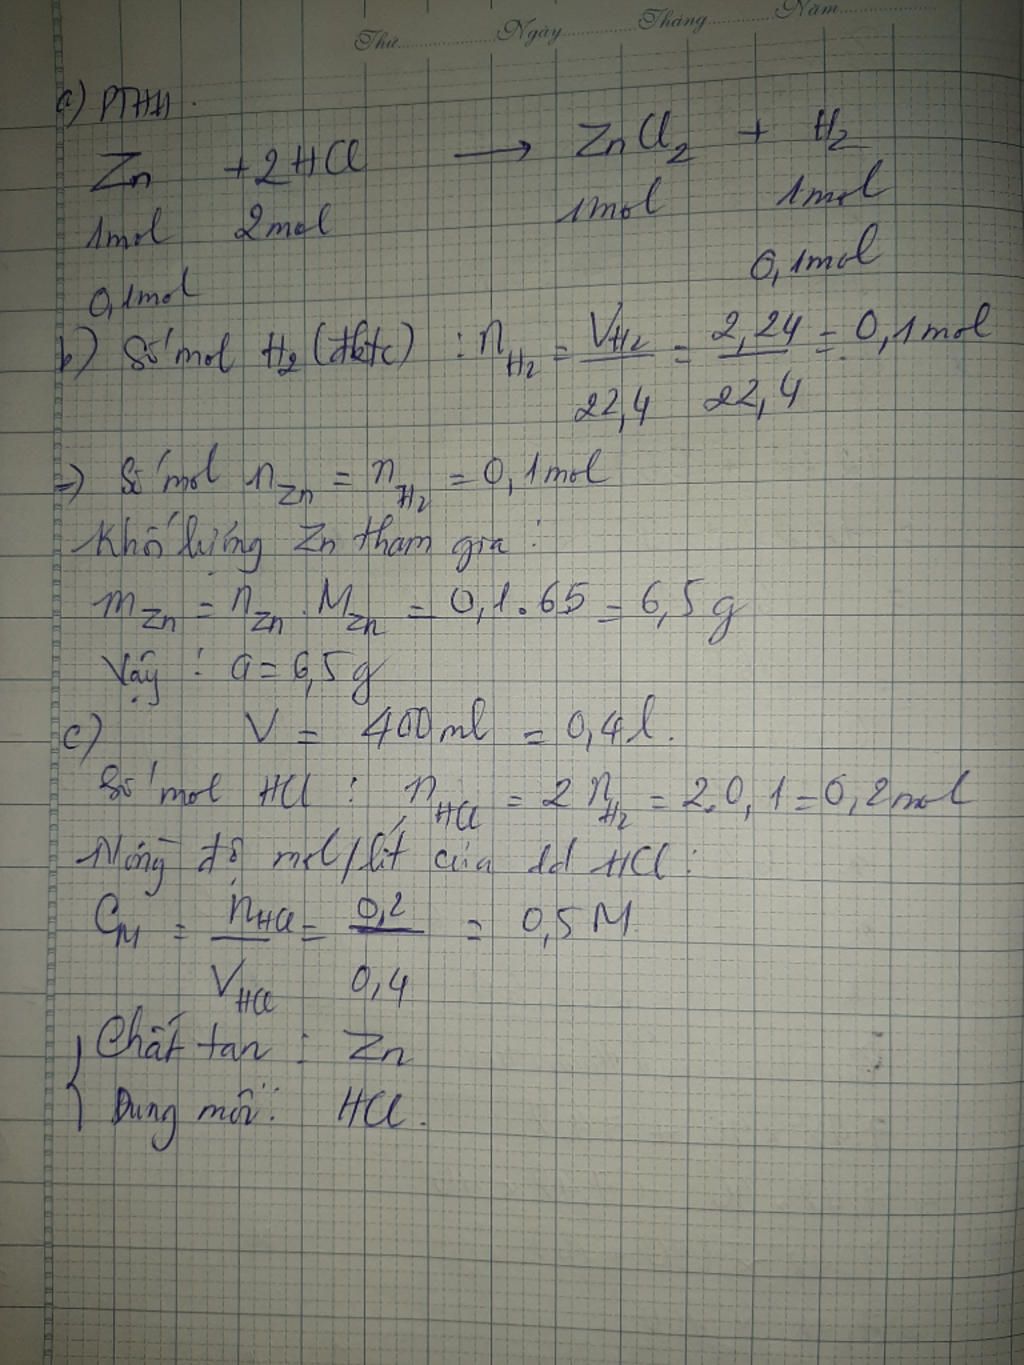 Thứ.............. Ngày.............. Tháng.............. Năm..............
a) PTHH.
Zn + 2HCl ⟶ ZnCl₂ + H₂
1mol 2mol 1mol 1mol
0,1mol
0,1mol
b) Số mol H₂ (đktc) : n_H₂ = V_H₂/22,4 = 2,24/22,4 = 0,1mol
=) Số mol n_Zn = n_H₂ = 0,1mol
Khối lượng Zn tham gia :
m_Zn = n_Zn . M_Zn = 0,1.65 = 6,5g
Vậy : a = 6,5g
c) V = 400ml = 0,4l.
Số mol HCl : n_HCl = 2n_H₂ = 2.0,1 = 0,2mol
Nồng độ mol/lít của dd HCl :
C_M = n_HCl/V_HCl = 0,2/0,4 = 0,5M
Chất tan : Zn
Dung môi : HCl.